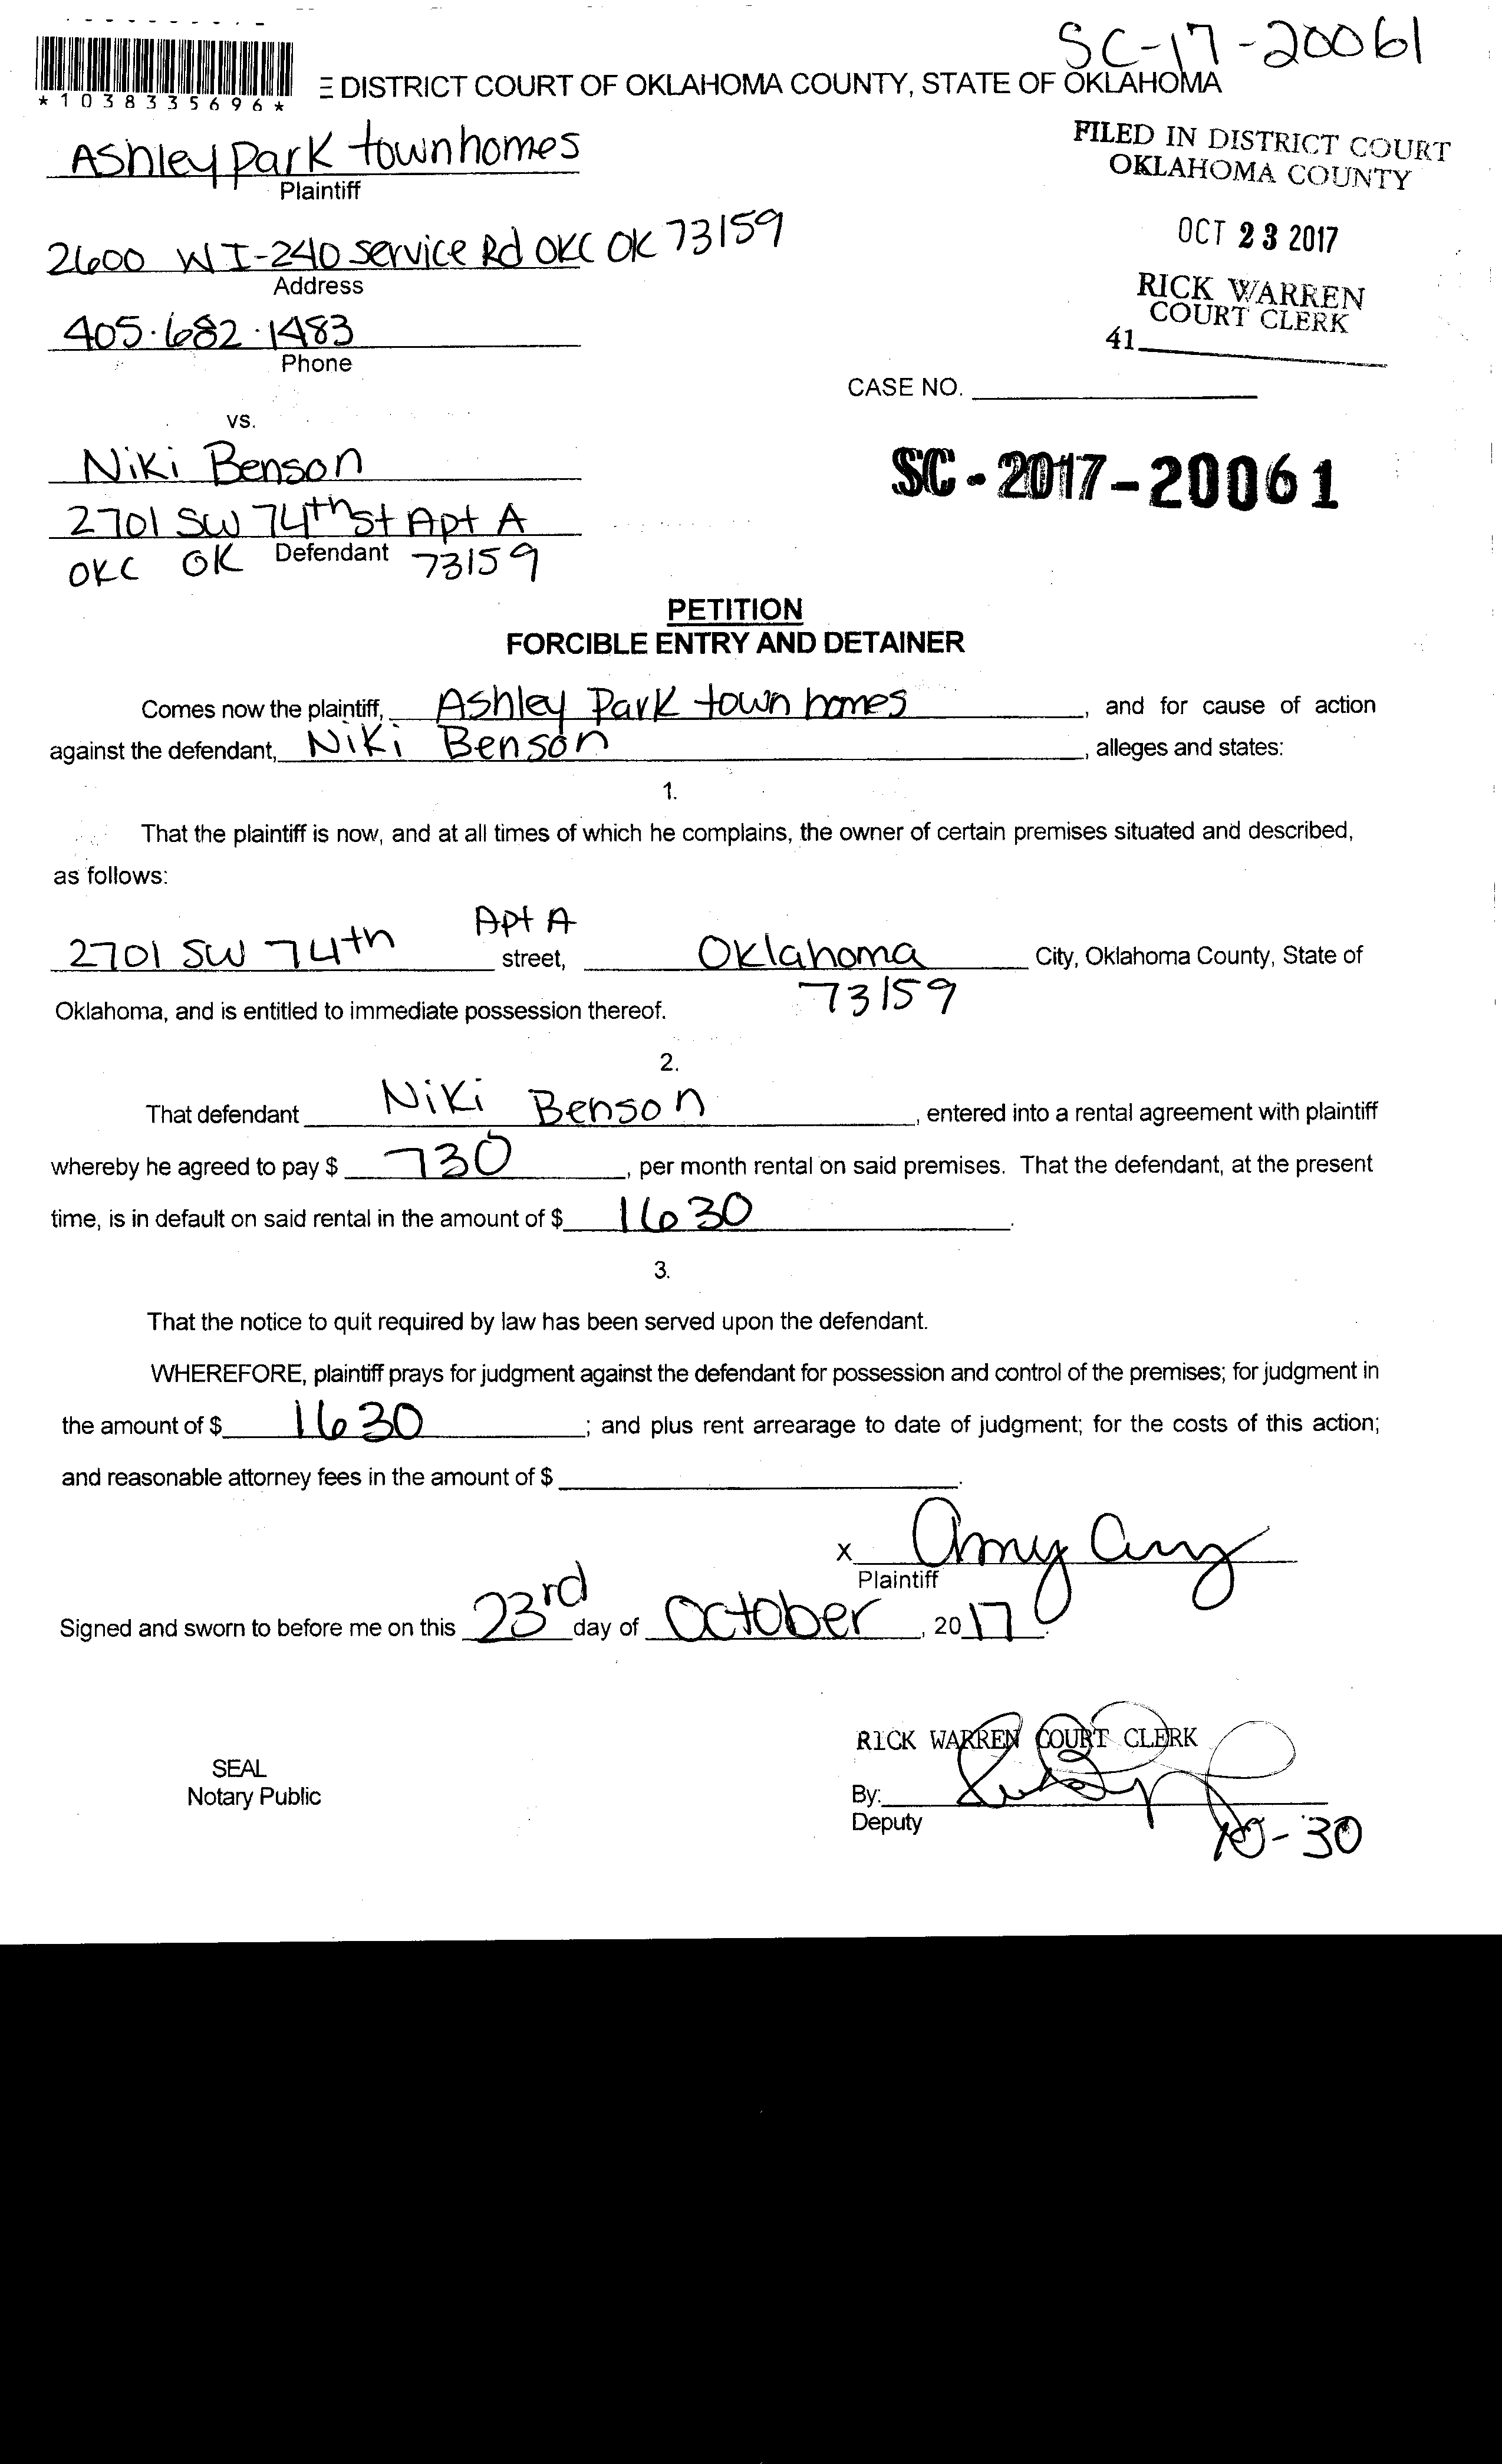 SC-17-20061
*1038335696*
E DISTRICT COURT OF OKLAHOMA COUNTY, STATE OF OKLAHOMA
Ashley Park townhomes
Plaintiff
FILED IN DISTRICT COURT
OKLAHOMA COUNTY
2600 W I-240 Service Rd OKC OK 73159
Address
OCT 23 2017
RICK WARREN
COURT CLERK
41
405.682.1483
Phone
CASE NO.
vs.
Niki Benson
SC-2017-20061
2701 SW 74th St Apt A
Defendant
OKC OK 73159
PETITION
FORCIBLE ENTRY AND DETAINER
Comes now the plaintiff, Ashley Park town homes, and for cause of action
against the defendant, Niki Benson, alleges and states:
1.
That the plaintiff is now, and at all times of which he complains, the owner of certain premises situated and described,
as follows:
Apt A
2701 SW 74th street, Oklahoma City, Oklahoma County, State of
73159
Oklahoma, and is entitled to immediate possession thereof.
2.
That defendant Niki Benson, entered into a rental agreement with plaintiff
whereby he agreed to pay $ 730, per month rental on said premises. That the defendant, at the present
time, is in default on said rental in the amount of $ 1630.
3.
That the notice to quit required by law has been served upon the defendant.
WHEREFORE, plaintiff prays for judgment against the defendant for possession and control of the premises; for judgment in
the amount of $ 1630; and plus rent arrearage to date of judgment; for the costs of this action;
and reasonable attorney fees in the amount of $ .
x Amy
Plaintiff
Signed and sworn to before me on this 23rd day of October, 2017.
RICK WARREN COURT CLERK
SEAL
Notary Public
By:
Deputy
10-30